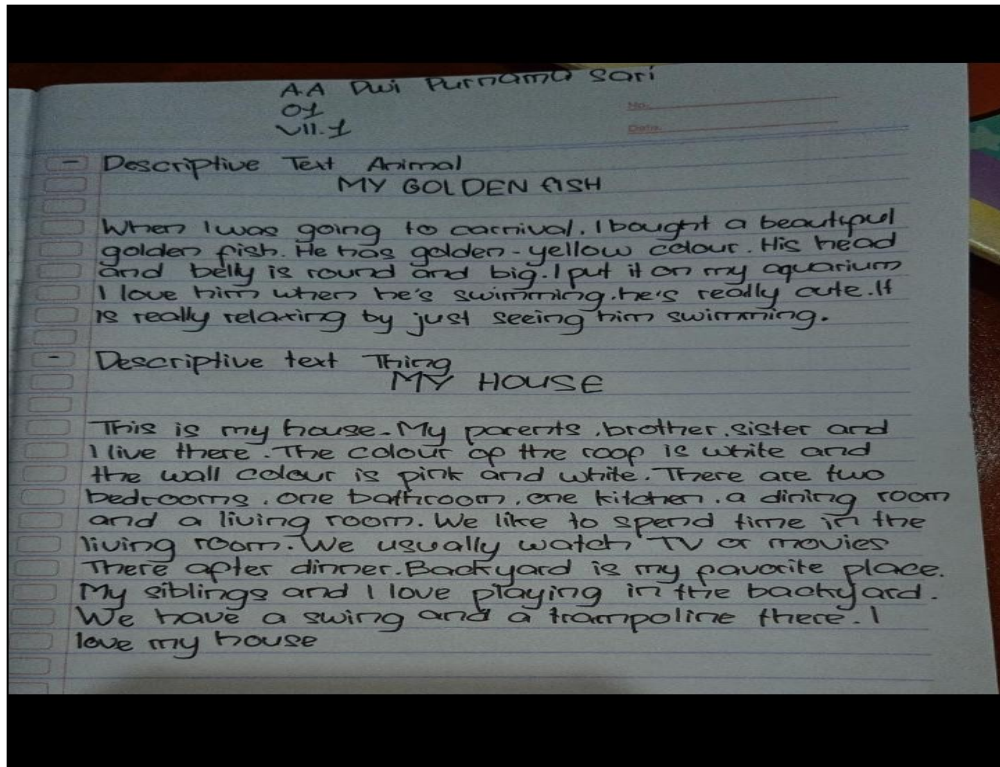 A.A Dwi Purnama Sari
01
VII.1
No.
Date.
- Descriptive Text Animal
MY GOLDEN FISH
When I was going to carnival. I bought a beautiful
golden fish. He has golden-yellow colour. His head
and belly is round and big. I put it on my aquarium
I love him when he's swimming. he's really cute. It
is really relaxing by just seeing him swimming.
- Descriptive text Thing
MY HOUSE
This is my house. My parents, brother, sister and
I live there. The colour of the roof is white and
the wall colour is pink and white. There are two
bedrooms, one bathroom, one kitchen, a dining room
and a living room. We like to spend time in the
living room. We usually watch TV or movies
There after dinner. Backyard is my favorite place.
My siblings and I love playing in the backyard.
We have a swing and a trampoline there. I
love my house